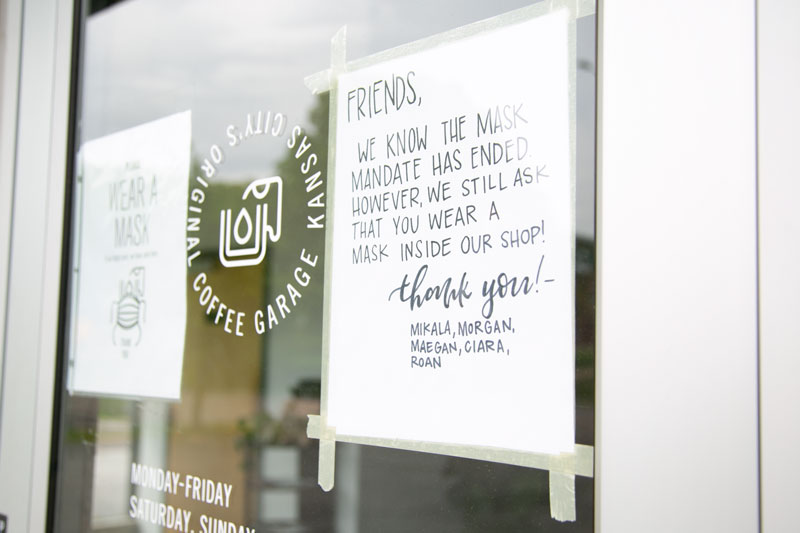 WEAR A
MASK
KANSAS CITY'S ORIGINAL COFFEE GARAGE
MONDAY-FRIDAY
SATURDAY, SUNDAY
FRIENDS,
WE KNOW THE MASK
MANDATE HAS ENDED.
HOWEVER, WE STILL ASK
THAT YOU WEAR A
MASK INSIDE OUR SHOP!
thank you!-
MIKALA, MORGAN,
MAEGAN, CIARA,
ROAN